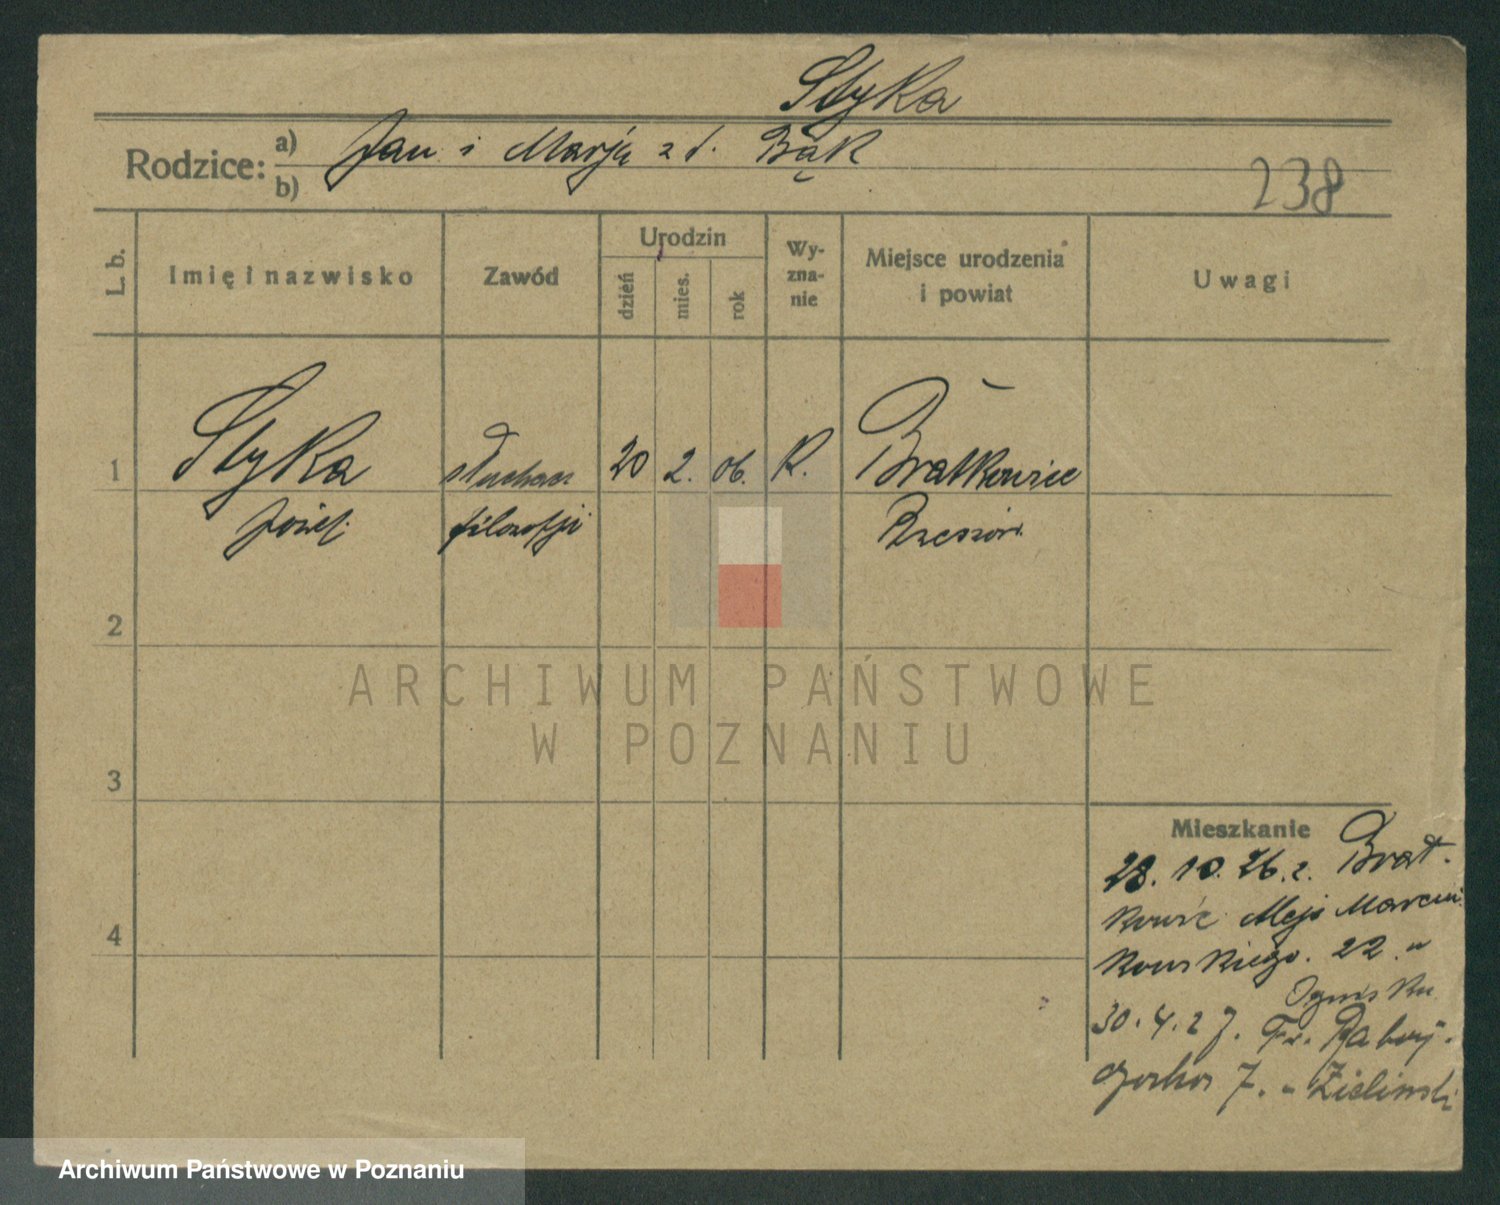 Styka
Rodzice: a) Jan i Marja z d. Bąk
b)
238
L. b. Imię i nazwisko Zawód Urodzin dzień mies. rok Wy-zna-nie Miejsce urodzenia i powiat Uwagi
1 Styka słuchacz 20 2. 06. R. Bratkowice
Józef filozofji Rzeszów
2
3
4
Mieszkanie
28. 10. 26. z Brat-
kowic Aleje Marcin
kowskiego 22 u
Ogniska
30. 4. 27. Fr. Rataj-
czaka 7. - Zieliński
ARCHIWUM PAŃSTWOWE
W POZNANIU
Archiwum Państwowe w Poznaniu